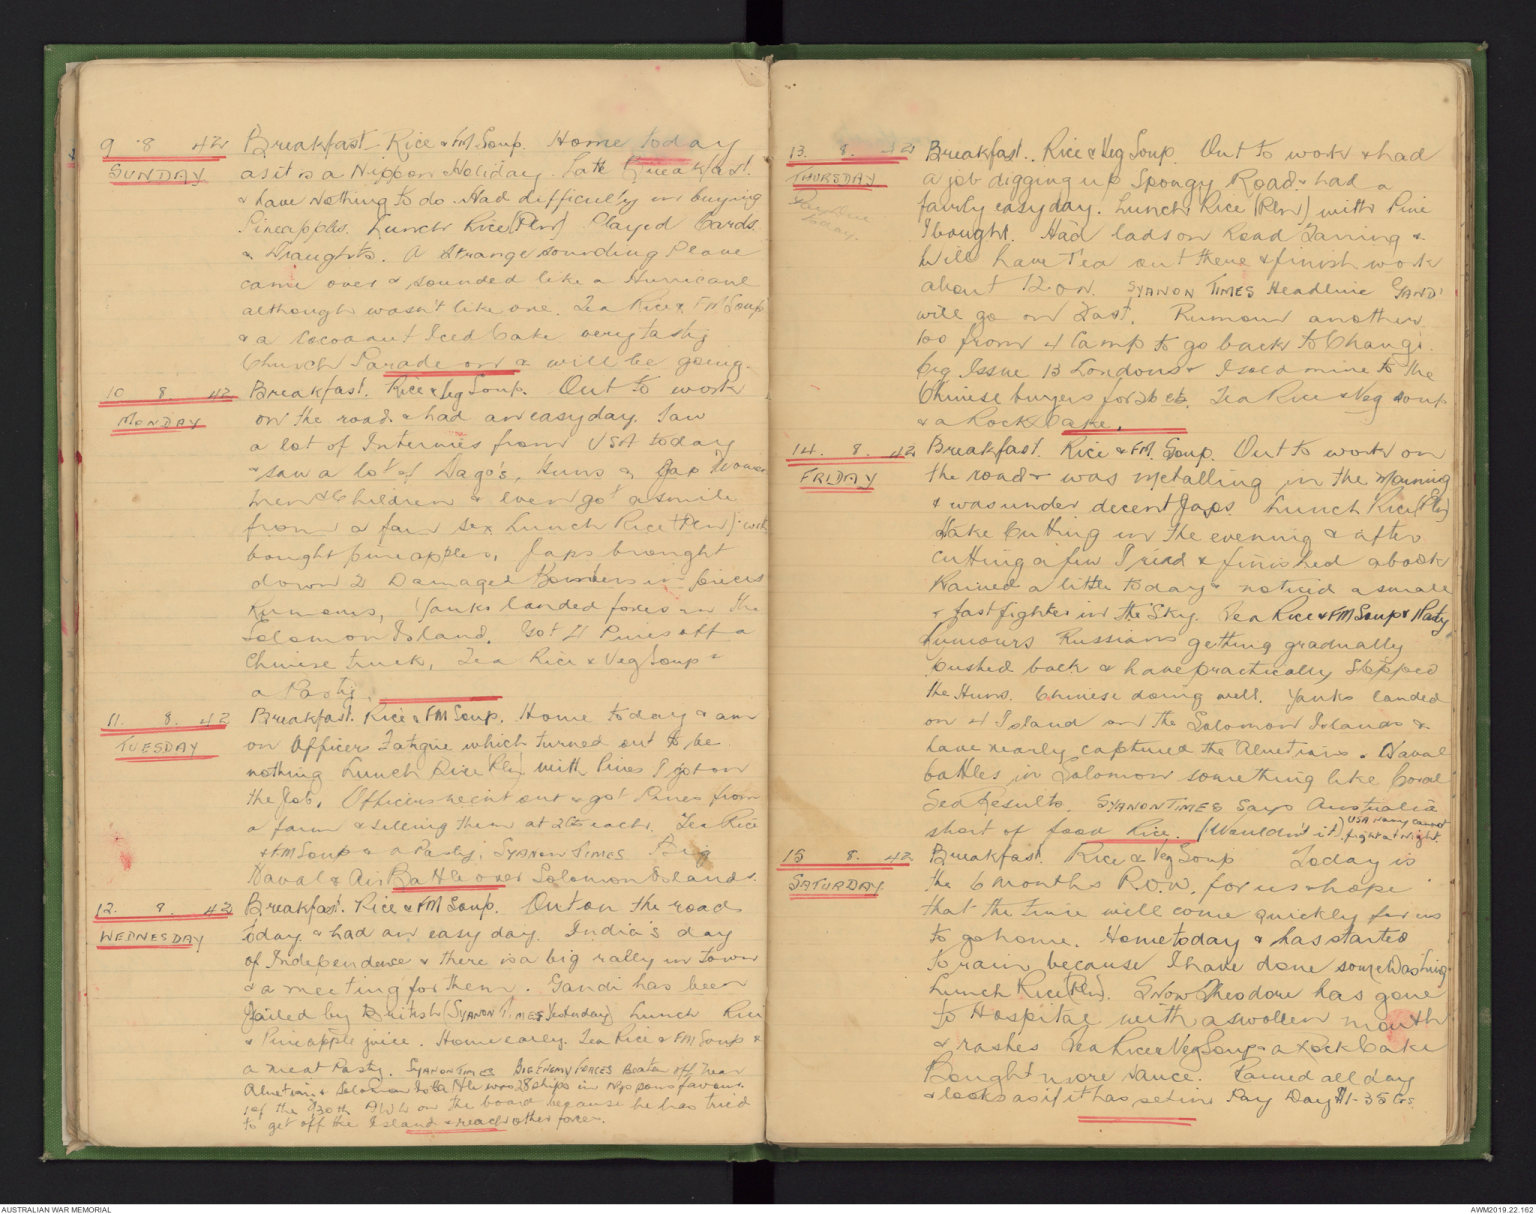 9 8 42 Breakfast Rice & FM Soup. Home today
SUNDAY as it is a Nippon Holiday. Late Breakfast.
& have nothing to do. Had difficulty in buying
Pineapples. Lunch Rice (Pln) Played Cards
& Draughts. A strange sounding Plane
came over & sounded like a Hurricane
although wasn't like one. Tea Rice & FM Soup
& a Cocoanut Iced Cake very tasty
Church Parade on & will be going.
10 8. 42 Breakfast. Rice & Veg Soup. Out to work
MONDAY on the road & had an easy day. Saw
a lot of Internies from USA today
& saw a lot of Dago's, Huns & Jap Women
men & Children & even got a smile
from a fair sex Lunch Rice (Pln) with
bought pineapples. Japs brought
down 2 Damaged Bombers in pieces
Rumours, Yanks landed forces in the
Solomon Island. Got 4 Pines off a
Chinese truck, Tea Rice & Veg Soup &
a Pasty.
11. 8. 42 Breakfast. Rice & FM Soup. Home today & am
TUESDAY on Officers Fatigue which turned out to be
nothing Lunch Rice (Pln) with Pines I got on
the Job. Officers went out & got Pines from
a farm & selling them at 20cts each. Tea Rice
& FM Soup & a Pasty. SYANON TIMES Big
Naval & Air Battle over Solomon Islands.
12. 8. 42 Breakfast. Rice & FM Soup. Out on the road
WEDNESDAY today & had an easy day. India's day
of Independence & there is a big rally in town
& a meeting for them. Gandi has been
Jailed by British (SYANON TIMES Yesterday) Lunch Rice
& Pineapple juice. Home early. Tea Rice & FM Soup &
a meat Pasty. SYANON TIMES BIG ENEMY FORCES Beaten off near
Aluetian & Solomon Is Battle was 28 ships in Nippons favour.
1 of the 2/30th AWL on the board because he has tried
to get off the Island & reach other forces.
13. 8. 42 Breakfast. Rice & Veg Soup. Out to work & had
THURSDAY a job digging up Spongy Road & had a
Pay Due today. fairly easy day. Lunch Rice (Pln) with Pine
I bought. Had lads on Road Tarring &
will have Tea out there & finish work
about 12.00. SYANON TIMES Headline GANDI
will go on Fast. Rumour another
100 from 4 Camp to go back to Changi.
Cig Issue 13 Londons & I sold mine to the
Chinese buyers for 26 cts. Tea Rice & Veg soup
& a Rock Cake.
14. 8. 42 Breakfast. Rice & FM. Soup. Out to work on
FRIDAY the road & was metalling in the morning
& was under decent Japs Lunch Rice (Pln)
Stake Cutting in the evening & after
cutting a few I read & finished a book
Rained a little today & noticed a small
& fast fighter in the Sky. Tea Rice & FM Soup & Pasty
Rumours Russians getting gradually
pushed back & have practically stopped
the Huns. Chinese doing well. Yanks landed
on 4 Island on the Solomon Islands &
have nearly captured the Aluetians. Naval
battles in Solomon something like Coral
Sea Results. SYANON TIMES Says Australia
short of food Rice. (Wouldn't it) USA Navy cannot fight at night.
15 8. 42 Breakfast. Rice & Veg Soup Today is
SATURDAY the 6 months P.O.W. for us & hope
that the time will come quickly for us
to go home. Home today & has started
to rain because I have done some Washing
Lunch Rice (Pln). Snow Theodore has gone
to Hospital with a swollen mouth
& rashes Tea Rice & Veg Soup & a Rock Cake
Bought more sauce. Rained all day
& looks as if it has set in Pay Day $1-35 Cts.
AUSTRALIAN WAR MEMORIAL
AWM2019.22.162